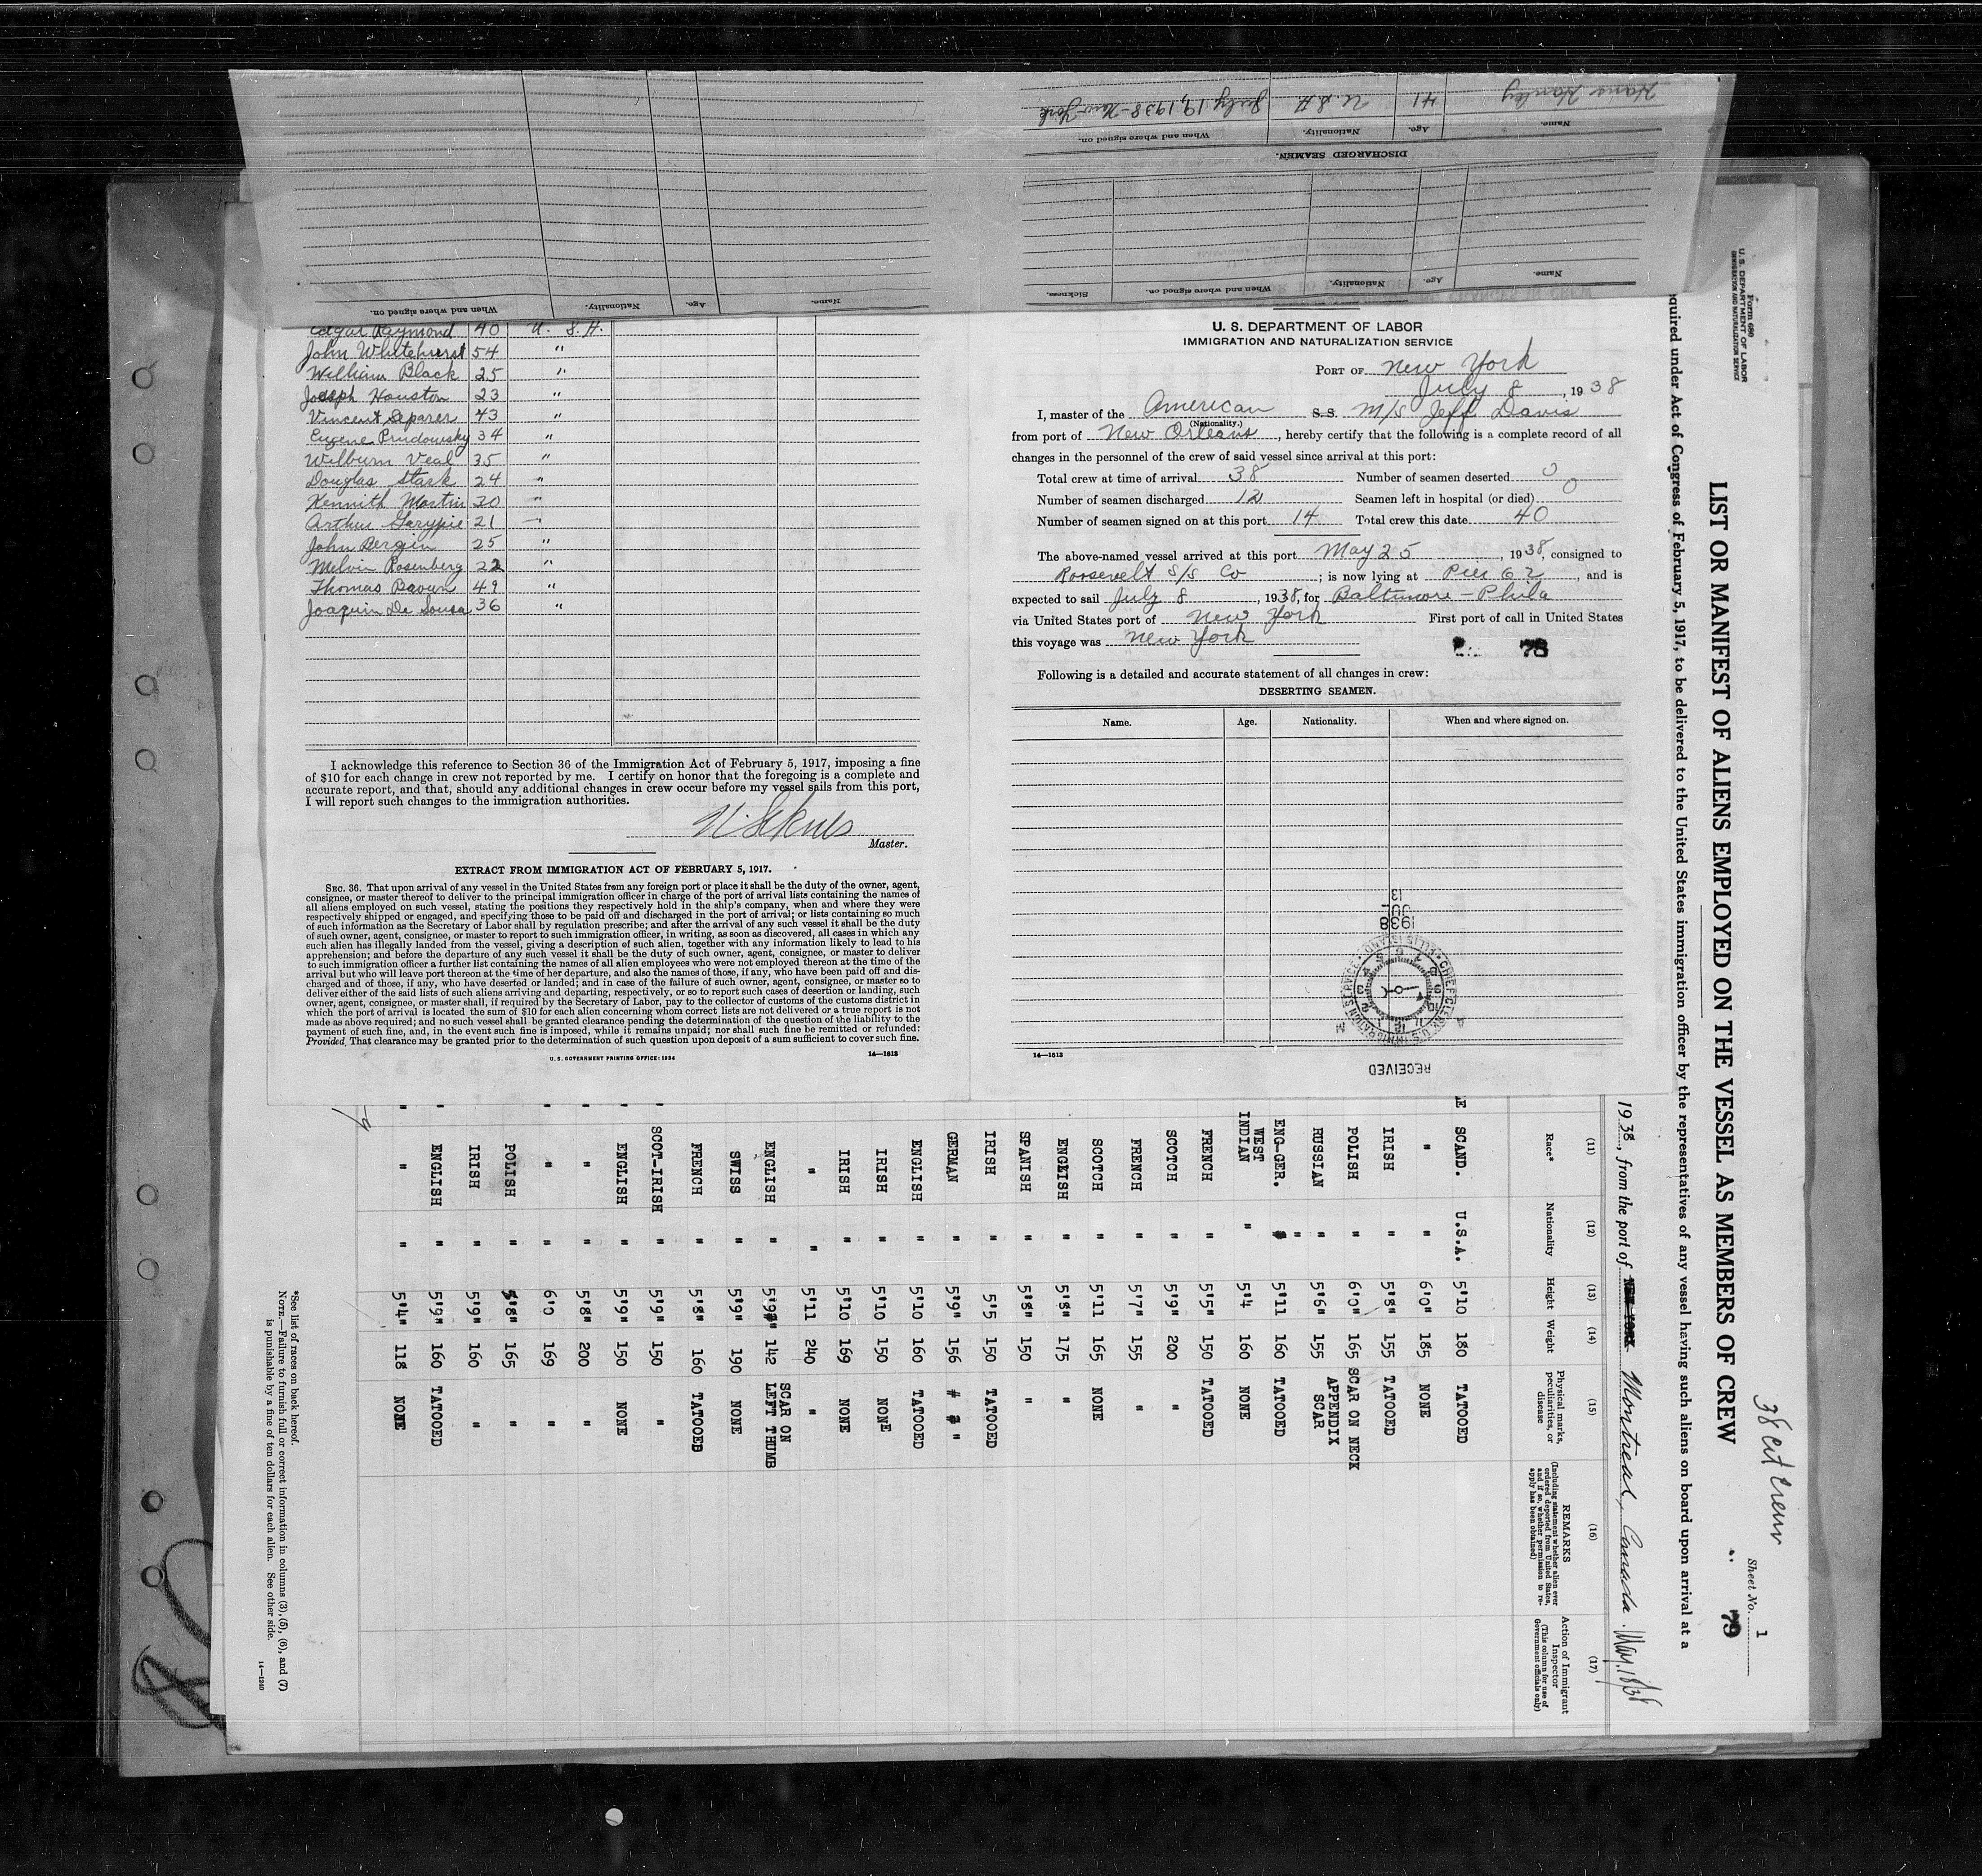 Name. Age. Nationality. When and where signed on.
Name. Age. Nationality. When and where signed on. Sickness.
DISCHARGED SEAMEN.
Name. Age. Nationality. When and where signed on.
Hans Hanley 41 U.S.A. July 19, 1938 - New York
Edgar Raymond 40 U. S. A.
John Whitehurst 54 "
William Black 25 "
Joseph Houston 23 "
Vincent Separer 43 "
Eugene Prudowsky 34 "
Wilburn Veal 35 "
Douglas Stark 24 "
Kennith Martin 30 "
Arthur Garypie 21 "
John Bergin 25 "
Melvin Rosenberg 22 "
Thomas 49 "
Joaquin De Sousa 36 "
I acknowledge this reference to Section 36 of the Immigration Act of February 5, 1917, imposing a fine
of $10 for each change in crew not reported by me. I certify on honor that the foregoing is a complete and
accurate report, and that, should any additional changes in crew occur before my vessel sails from this port,
I will report such changes to the immigration authorities.
Master.
EXTRACT FROM IMMIGRATION ACT OF FEBRUARY 5, 1917.
SEC. 36. That upon arrival of any vessel in the United States from any foreign port or place it shall be the duty of the owner, agent,
consignee, or master thereof to deliver to the principal immigration officer in charge of the port of arrival lists containing the names of
all aliens employed on such vessel, stating the positions they respectively hold in the ship's company, when and where they were
respectively shipped or engaged, and specifying those to be paid off and discharged in the port of arrival; or lists containing so much
of such information as the Secretary of Labor shall by regulation prescribe; and after the arrival of any such vessel it shall be the duty
of such owner, agent, consignee, or master to report to such immigration officer, in writing, as soon as discovered, all cases in which any
such alien has illegally landed from the vessel, giving a description of such alien, together with any information likely to lead to his
apprehension; and before the departure of any such vessel it shall be the duty of such owner, agent, consignee, or master to deliver
to such immigration officer a further list containing the names of all alien employees who were not employed thereon at the time of the
arrival but who will leave port thereon at the time of her departure, and also the names of those, if any, who have been paid off and dis-
charged and of those, if any, who have deserted or landed; and in case of the failure of such owner, agent, consignee, or master so to
deliver either of the said lists of such aliens arriving and departing, respectively, or so to report such cases of desertion or landing, such
owner, agent, consignee, or master shall, if required by the Secretary of Labor, pay to the collector of customs of the customs district in
which the port of arrival is located the sum of $10 for each alien concerning whom correct lists are not delivered or a true report is not
made as above required; and no such vessel shall be granted clearance pending the determination of the question of the liability to the
payment of such fine, and, in the event such fine is imposed, while it remains unpaid; nor shall such fine be remitted or refunded:
Provided, That clearance may be granted prior to the determination of such question upon deposit of a sum sufficient to cover such fine.
U. S. GOVERNMENT PRINTING OFFICE: 1934 14—1613
U. S. DEPARTMENT OF LABOR
IMMIGRATION AND NATURALIZATION SERVICE
PORT OF New York
July 8, 1938
I, master of the American S. S. M/S Jeff Davis
(Nationality.)
from port of New Orleans, hereby certify that the following is a complete record of all
changes in the personnel of the crew of said vessel since arrival at this port:
Total crew at time of arrival 38 Number of seamen deserted 0
Number of seamen discharged 12 Seamen left in hospital (or died) 0
Number of seamen signed on at this port 14 Total crew this date 40
The above-named vessel arrived at this port May 25, 1938, consigned to
Roosevelt S/S Co; is now lying at Pier 62, and is
expected to sail July 8, 1938, for Baltimore - Phila
via United States port of New York First port of call in United States
this voyage was New York
78
Following is a detailed and accurate statement of all changes in crew:
DESERTING SEAMEN.
Name. Age. Nationality. When and where signed on.
1938
JUL
13
CHIEF CLERK U.S. IMMIGRATION SERVICE ELLIS ISLAND
RECEIVED
14—1613
Form 680
U. S. DEPARTMENT OF LABOR
IMMIGRATION AND NATURALIZATION SERVICE
38 cit crew
Sheet No. 1
79
LIST OR MANIFEST OF ALIENS EMPLOYED ON THE VESSEL AS MEMBERS OF CREW
quired under Act of Congress of February 5, 1917, to be delivered to the United States immigration officer by the representatives of any vessel having such aliens on board upon arrival at a
1938, from the port of NEW YORK Montreal, Canada. May 18/38
(11) (12) (13) (14) (15) (16) (17)
Race* Nationality Height Weight Physical marks, peculiarities, or disease REMARKS (Including statement whether alien ever ordered deported from United States, and if so, whether permission to reapply has been obtained) Action of Immigrant Inspector (This column for use of Government officials only)
SCAND. U.S.A. 5'10 180 TATOOED
" " 6'0" 185 NONE
IRISH " 5'8" 155 TATOOED
POLISH " 6'0" 165 SCAR ON NECK
RUSSIAN " 5'6" 155 APPENDIX SCAR
ENG-GER. " 5'11 160 TATOOED
WEST INDIAN " 5'4 160 NONE
FRENCH " 5'5" 150 TATOOED
SCOTCH " 5'9" 200 "
FRENCH " 5'7" 155 "
SCOTCH " 5'11 165 NONE
ENGLISH " 5'8" 175 "
SPANISH " 5'8" 150 "
IRISH " 5'5 150 TATOOED
GERMAN " 5'9" 156 "
ENGLISH " 5'10 160 TATOOED
IRISH " 5'10 150 NONE
IRISH " 5'10 169 NONE
" " 5'11 240 "
ENGLISH " 5'9" 142 SCAR ON LEFT THUMB
SWISS " 5'9" 190 NONE
FRENCH " 5'8" 160 TATOOED
SCOT-IRISH " 5'9" 150 "
ENGLISH " 5'9" 150 NONE
" " 5'8" 200 "
" " 6'0 169 "
POLISH " 5'8" 165 "
IRISH " 5'9" 160 "
ENGLISH " 5'9" 160 TATOOED
" " 5'4" 118 NONE
*See list of races on back hereof.
NOTE.—Failure to furnish full or correct information in columns (3), (5), (6), and (7)
is punishable by a fine of ten dollars for each alien. See other side.
14—1240